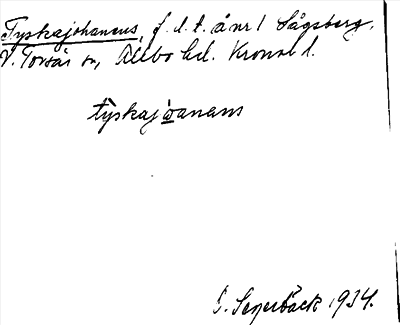 Tyskajohansus, f. d. t. å nr 1 Sågsberg,
V. Torsås sn, Allbo hd. Kronob l.
tyskajoanans
S. Segerbäck 1934.